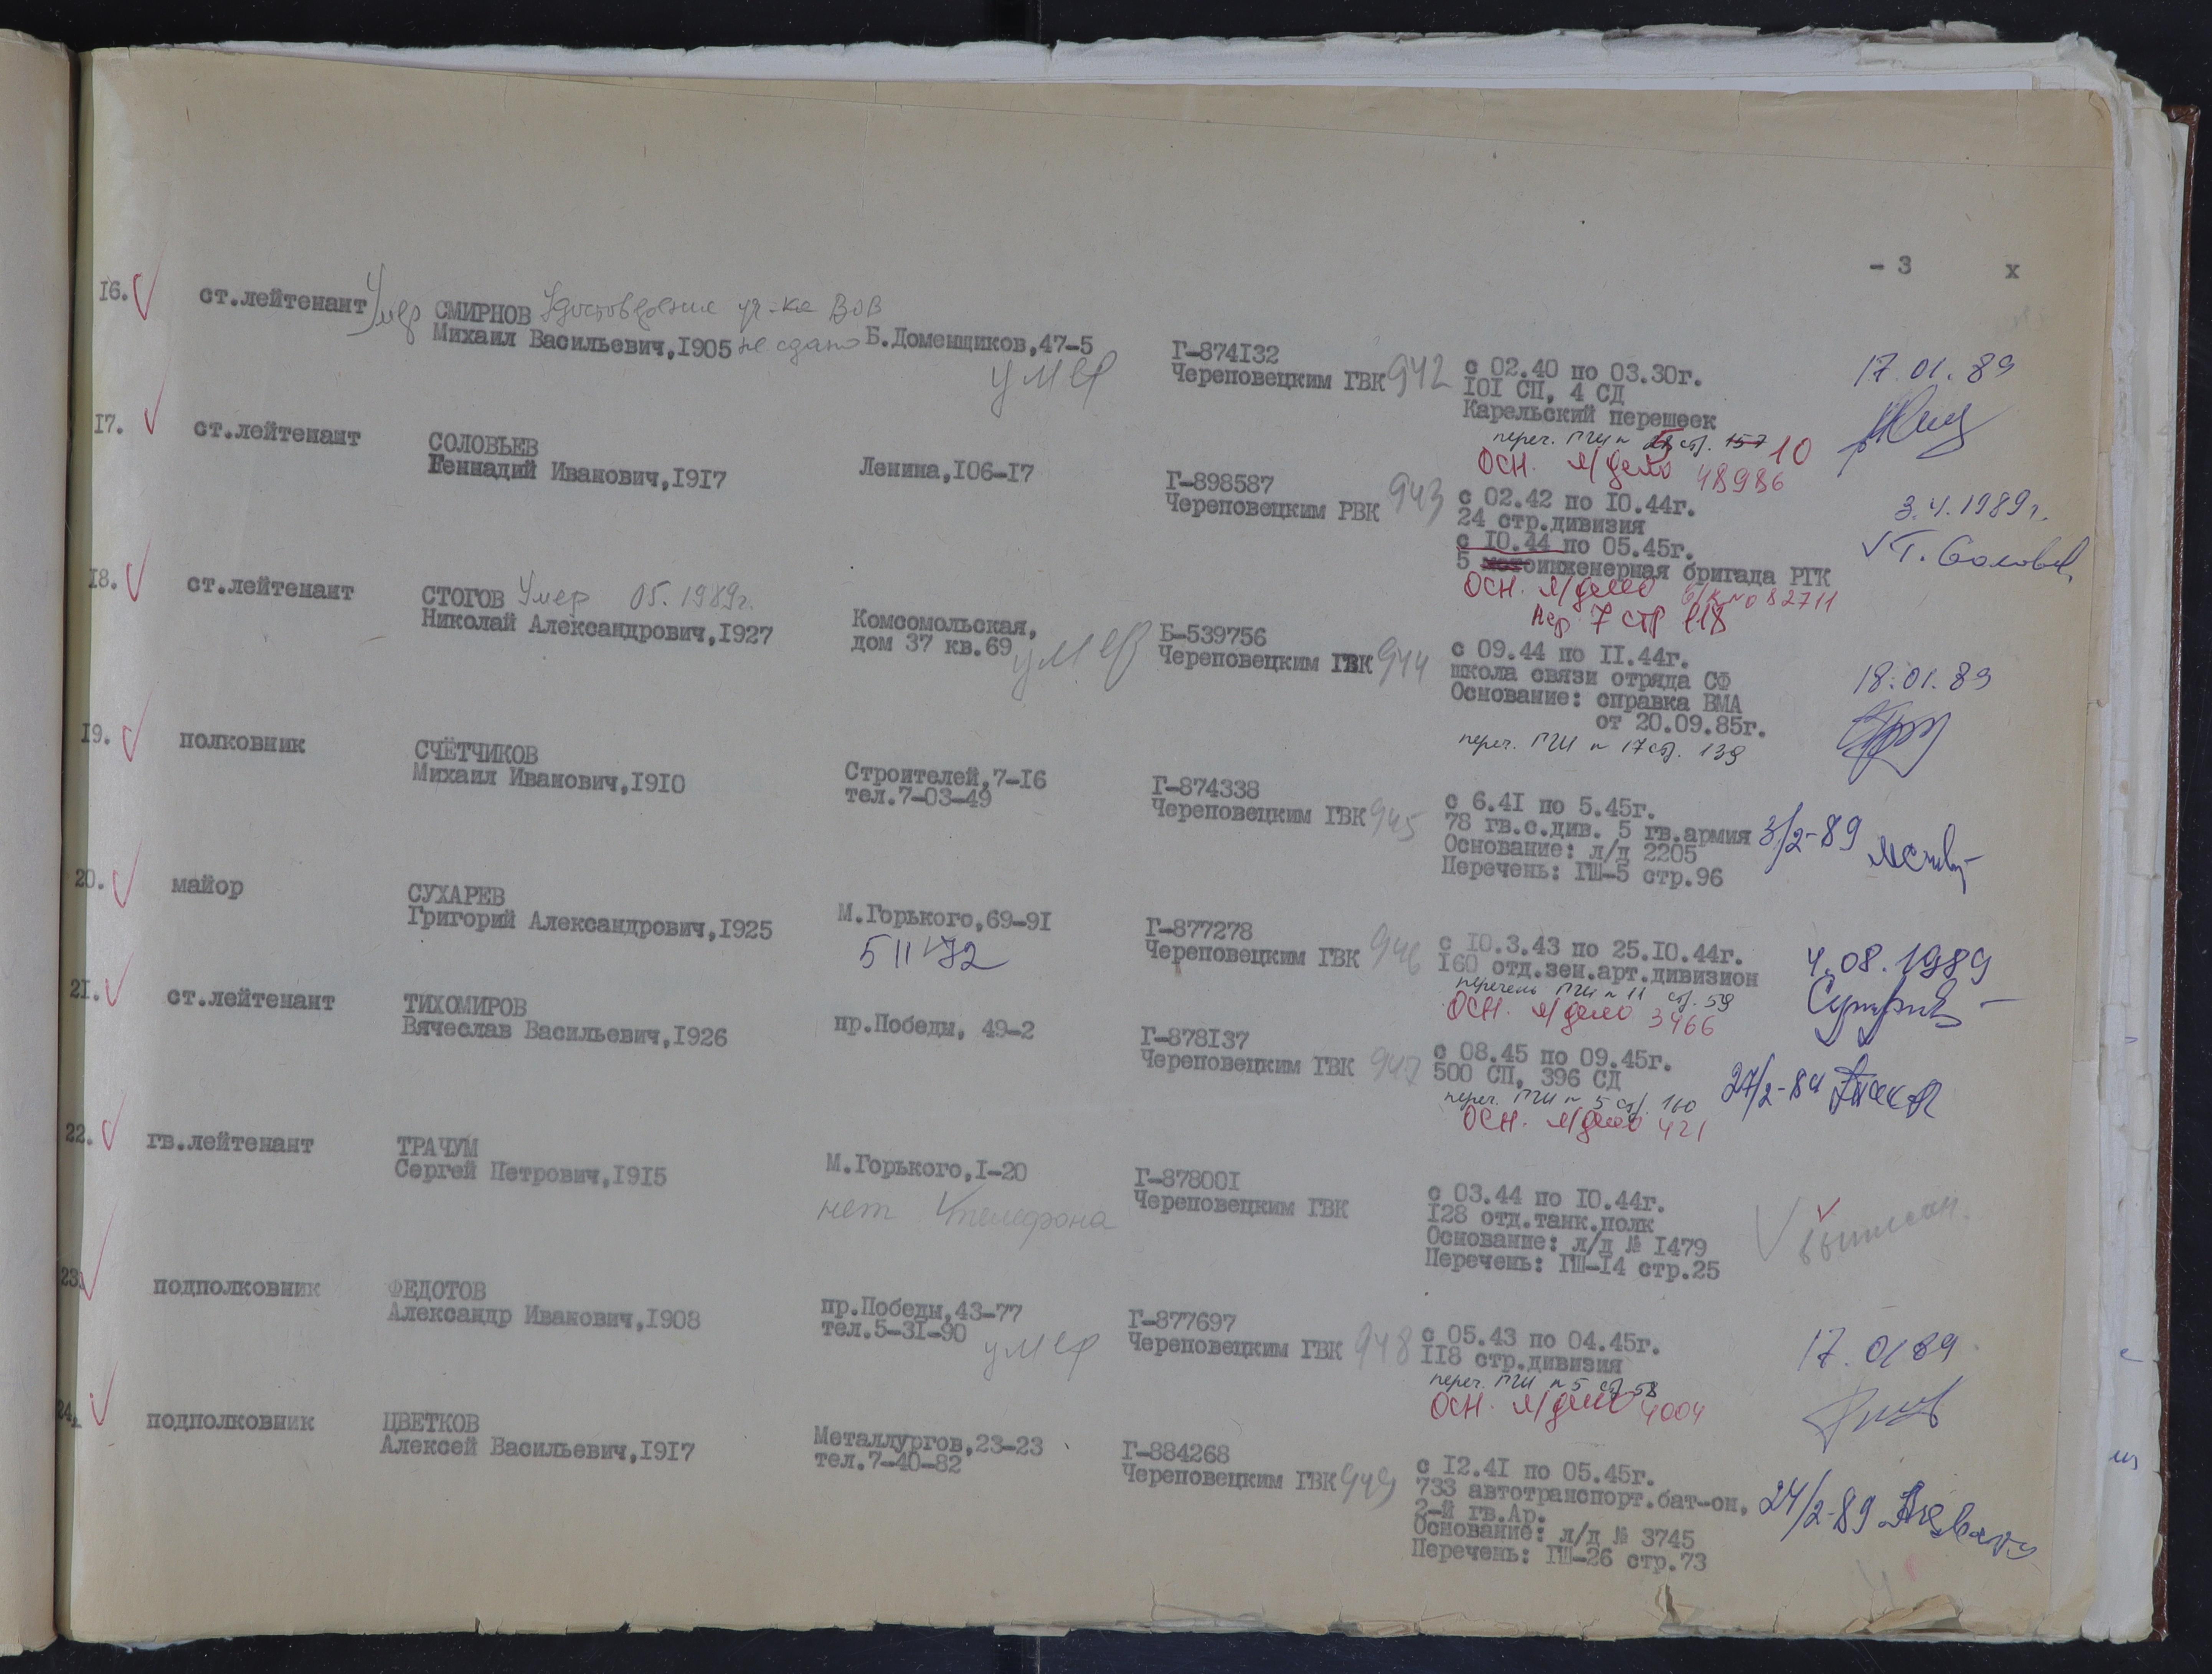 - 3 х
16. ст.лейтенант Умер СМИРНОВ Удостоверение уч-ка ВОВ
Михаил Васильевич,1905 не сдано Б.Доменщиков,47-5
умер
Г-874132
Череповецким ГВК 942
с 02.40 по 03.30г.
101 СП, 4 СД
Карельский перешеек
переч. ГШ № стр. 157 10
осн. л/дело 48986
17.01.89
17. ст.лейтенант СОЛОВЬЕВ
Геннадий Иванович,1917
Ленина,106-17
Г-898587
Череповецким РВК 943
с 02.42 по 10.44г.
24 стр.дивизия
с 10.44 по 05.45г.
5 инженерная бригада РГК
осн. л/дело б/к № 82711
пер 7 стр 118
3.4.1989г.
18. ст.лейтенант СТОГОВ Умер 05.1989г.
Николай Александрович,1927
Комсомольская,
дом 37 кв.69
умер
Б-539756
Череповецким ГВК 944
с 09.44 по 11.44г.
школа связи отряда СФ
Основание: справка ВМА
от 20.09.85г.
переч. ГШ № 17 стр. 139
18.01.89
19. полковник СЧЁТЧИКОВ
Михаил Иванович,1910
Строителей,7-16
тел.7-03-49
Г-874338
Череповецким ГВК 945
с 6.41 по 5.45г.
78 гв.с.див. 5 гв.армия
Основание: л/д 2205
Перечень: ГШ-5 стр.96
3/2-89
20. майор СУХАРЕВ
Григорий Александрович,1925
М.Горького,69-91
5 11 72
Г-877278
Череповецким ГВК 946
с 10.3.43 по 25.10.44г.
160 отд.зен.арт.дивизион
перечень ГШ № 11 стр. 59
осн. л/дело 3466
4.08.1989
21. ст.лейтенант ТИХОМИРОВ
Вячеслав Васильевич,1926
пр.Победы, 49-2
Г-878137
Череповецким ГВК 947
с 08.45 по 09.45г.
500 СП, 396 СД
переч. ГШ № 5 стр. 160
осн. л/дело 421
27/2-89
22. гв.лейтенант ТРАЧУМ
Сергей Петрович,1915
М.Горького,1-20
нет телефона
Г-878001
Череповецким ГВК
с 03.44 по 10.44г.
128 отд.танк.полк
Основание: л/д № 1479
Перечень: ГШ-14 стр.25
выписан
23. подполковник ФЕДОТОВ
Александр Иванович,1908
пр.Победы,43-77
тел.5-31-90
умер
Г-877697
Череповецким ГВК 948
с 05.43 по 04.45г.
118 стр.дивизия
переч. ГШ № 5 стр 58
осн. л/дело 4004
17.01 89
24. подполковник ЦВЕТКОВ
Алексей Васильевич,1917
Металлургов,23-23
тел.7-40-82
Г-884268
Череповецким ГВК 949
с 12.41 по 05.45г.
733 автотранспорт.бат-он,
2-й гв.Ар.
Основание: л/д № 3745
Перечень: ГШ-26 стр.73
24/2-89